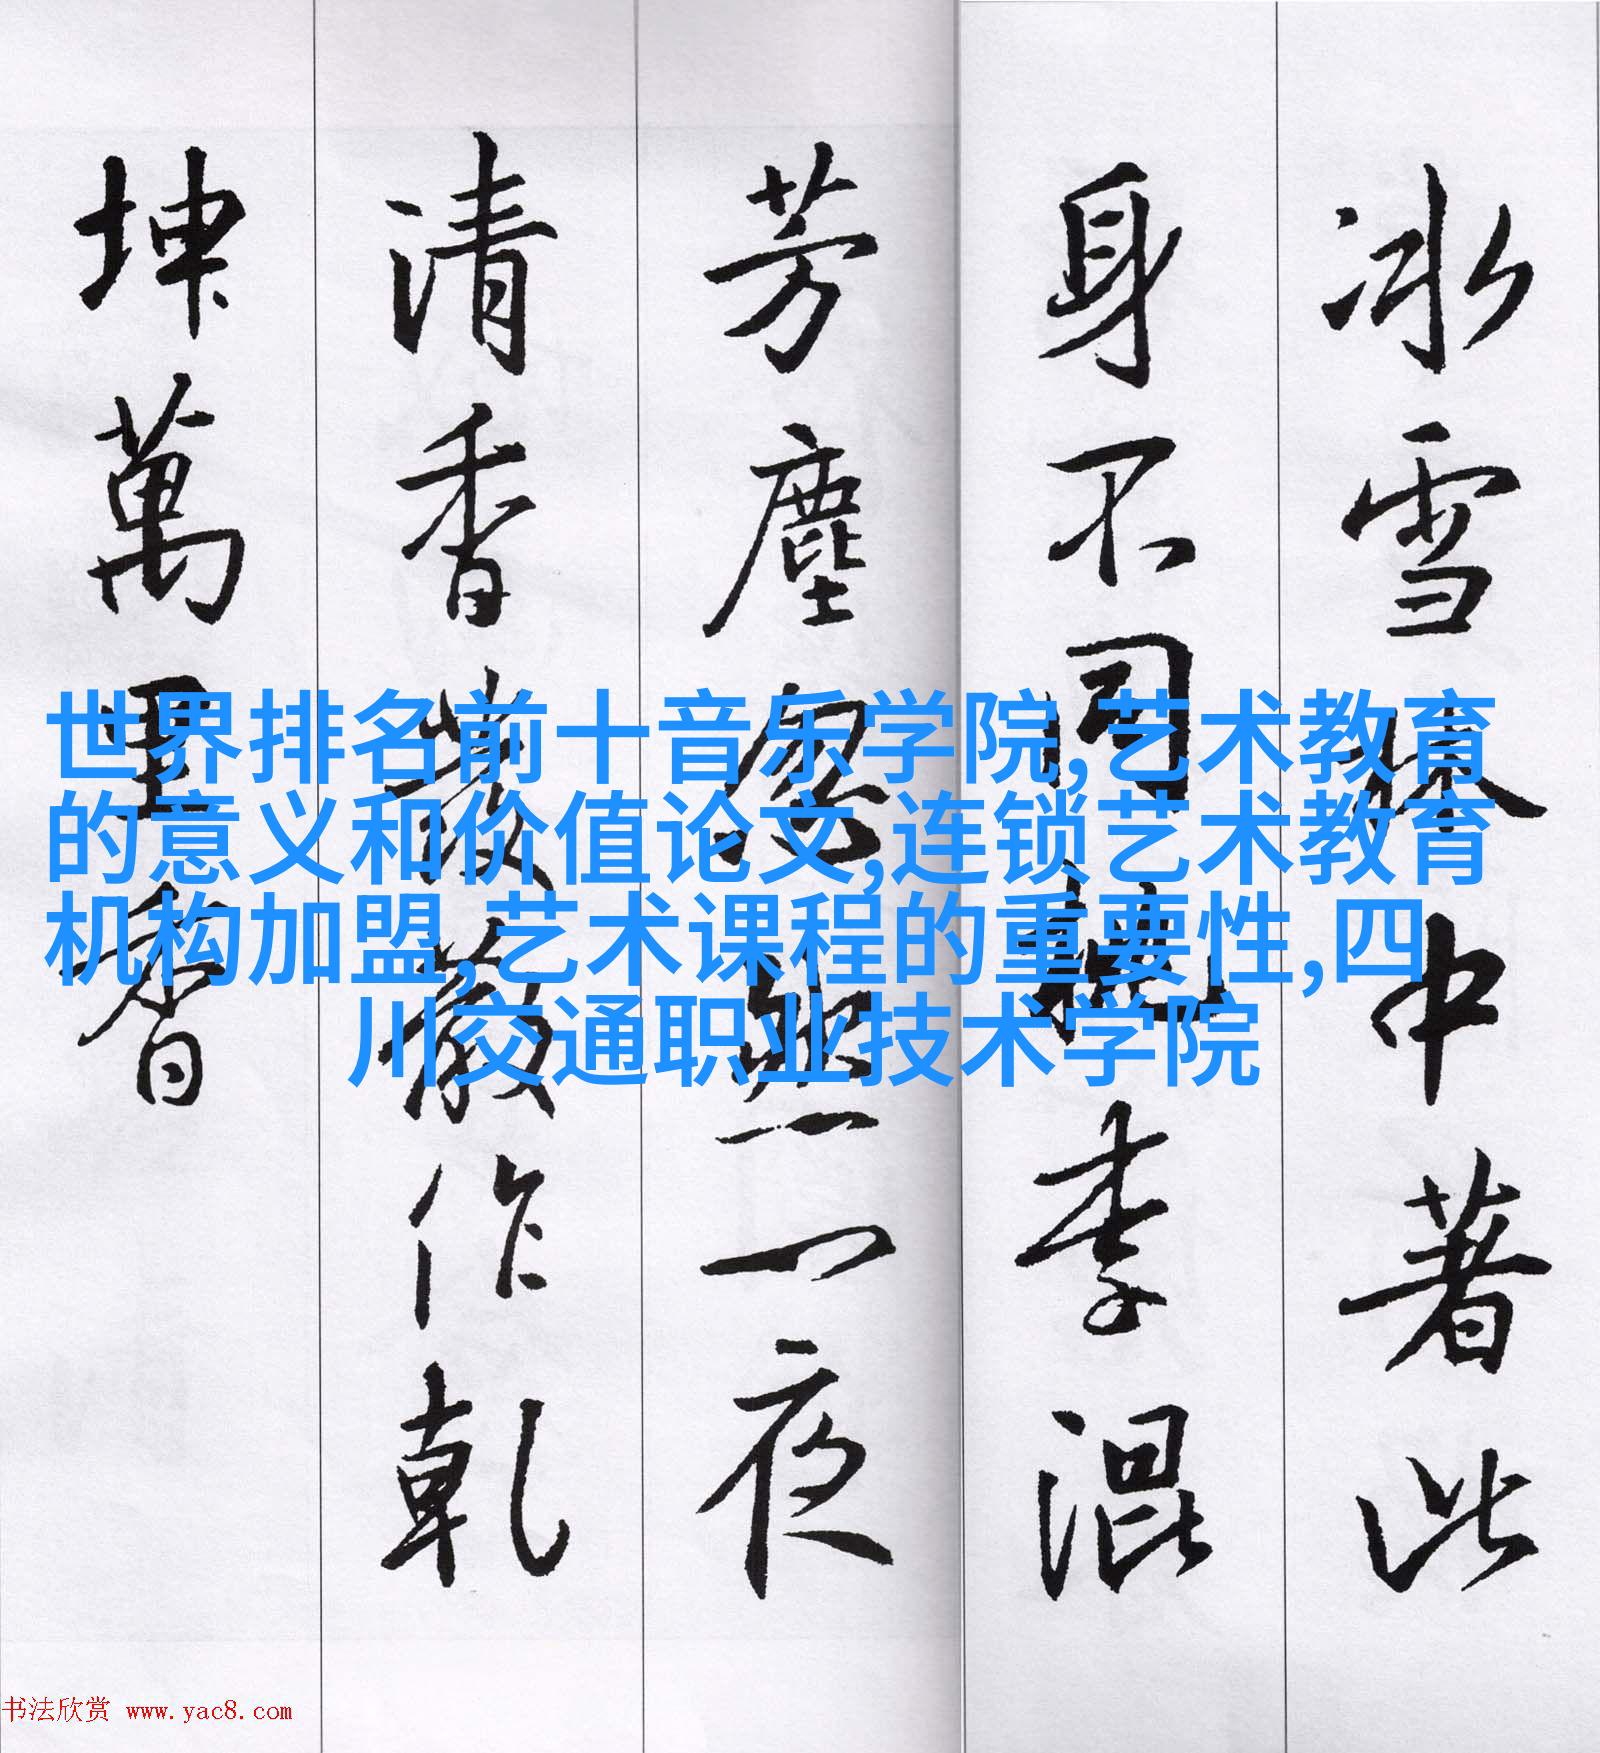 冰雪林中著此
身不同桃李混
芳塵忽然一夜
清香發散作乾
坤萬里香
世界排名前十音乐学院,艺术教育
的意义和价值论文,连锁艺术教育
机构加盟,艺术课程的重要性,四
川交通职业技术学院
书法欣赏 www.yac8.com